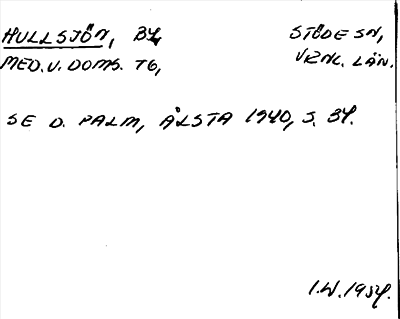 HULLSJÖN, BY, STÖDE SN,
MED. V. DOMS. TG, VRNL. LÄN.
SE D. PALM, ÅLSTA 1940, S. 34.
I.W. 1954.